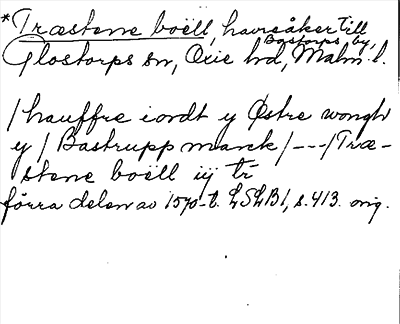 *Træstene boëll, havreåker till Bastorps by,
Glostorps sn, Oxie hd, Malm. l.
/hauffre iordt y Østre wongh
y/Bastrupp marck/---/Træ-
stene boëll iÿ tr̄
förra delen av 1570-t. LSLB1, s. 413. orig.